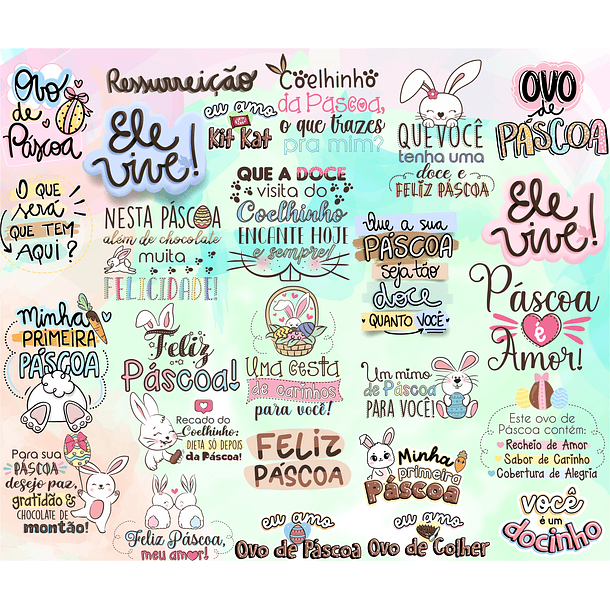 Ovo
de
Páscoa
Ressurreição
Ele
vive!
eu amo
Kit Kat
Coelhinho
da Páscoa,
o que trazes
pra mim?
QUE VOCÊ
tenha uma
doce e
FELIZ PÁSCOA
OVO
de
PÁSCOA
O QUE
será
QUE TEM
AQUI?
NESTA PÁSCOA
além de chocolate
muita
FELICIDADE!
QUE A DOCE
visita do
Coelhinho
ENCANTE HOJE
e sempre!
Que a sua
PÁSCOA
seja tão
doce
QUANTO VOCÊ
Ele
vive!
Minha
PRIMEIRA
PÁSCOA
Feliz
Páscoa!
Uma cesta
de carinhos
para você!
Um mimo
de Páscoa
PARA VOCÊ!
Páscoa
é
Amor!
Para sua
PÁSCOA
desejo paz,
gratidão &
CHOCOLATE DE
montão!
Recado do
Coelhinho:
DIETA SÓ DEPOIS
da Páscoa!
FELIZ
PÁSCOA
Minha
primeira
Páscoa
Este ovo de
Páscoa contém:
Recheio de Amor
Sabor de Carinho
Cobertura de Alegria
Feliz Páscoa,
meu amor!
eu amo
Ovo de Páscoa
eu amo
Ovo de Colher
você
é um
docinho